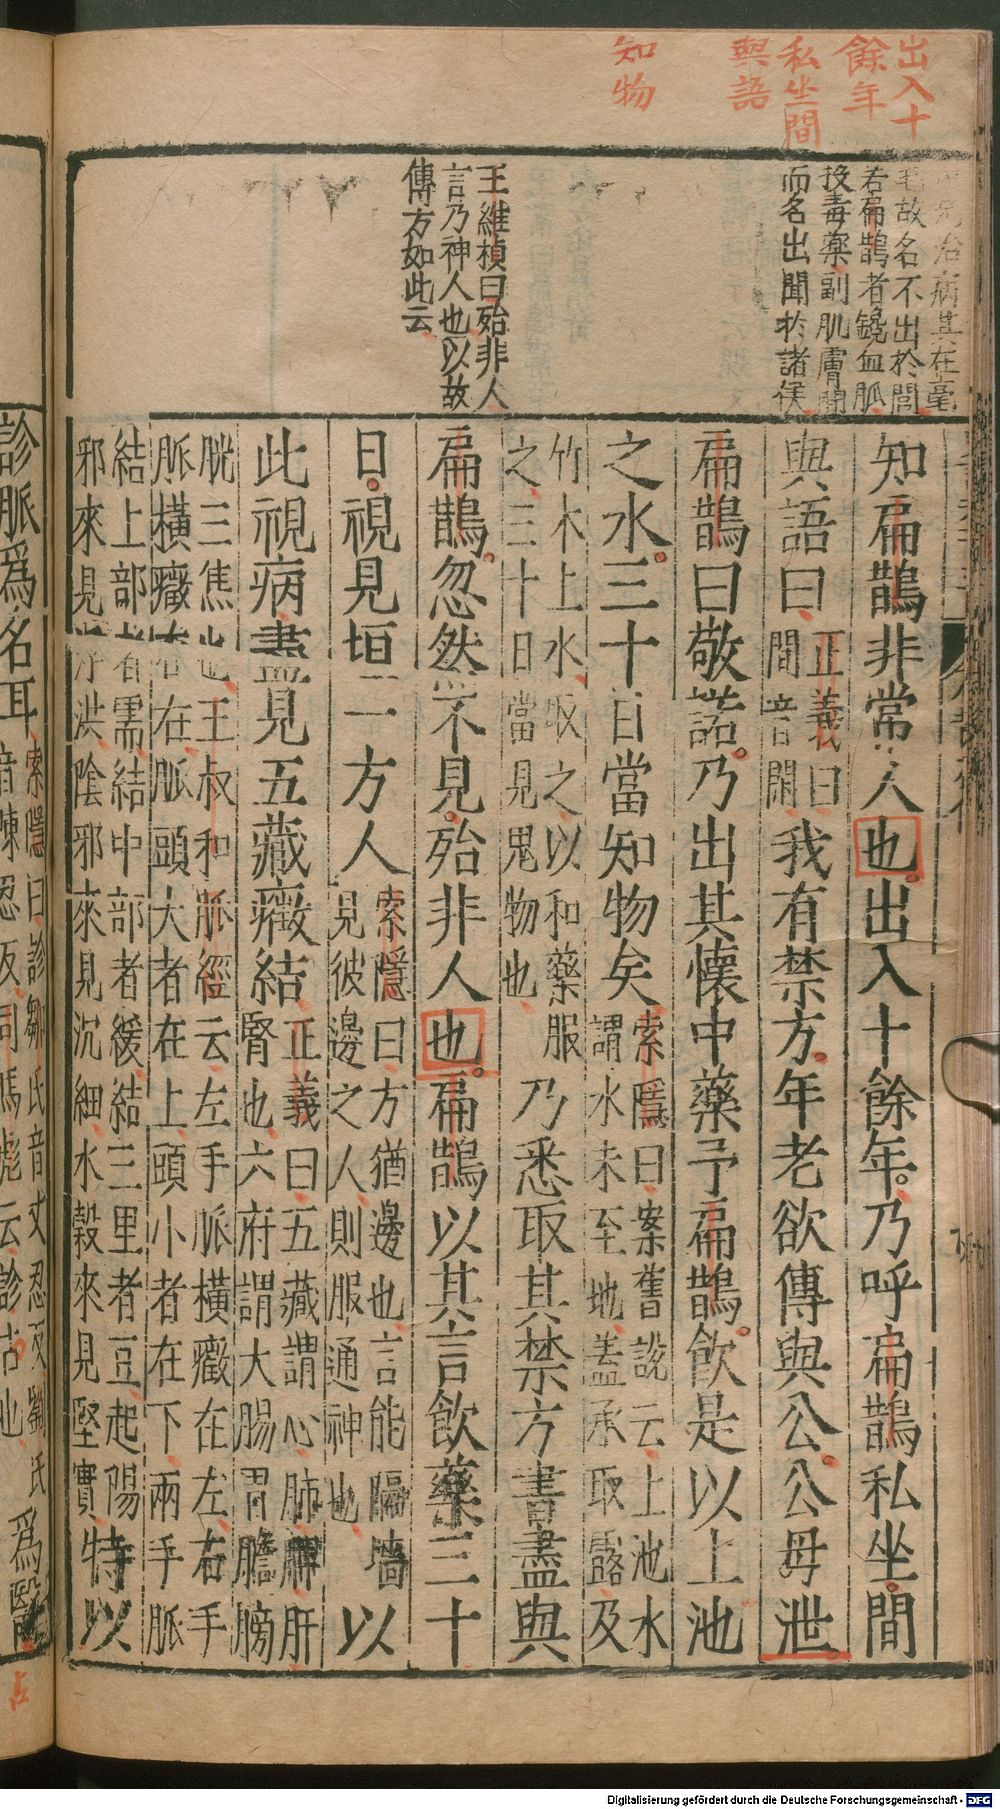 出入十
餘年
私坐間
與語
知物
治病其在毫
毛故名不出於閭
若扁鵲者鑱血脈
投毒藥副肌膚閒
而名出聞於諸侯
王維楨曰殆非人
言乃神人也以故
傳方如此云
知扁鵲非常人也出入十餘年乃呼扁鵲私坐間
與語曰正義曰間音閑我有禁方年老欲傳與公公毋泄
扁鵲曰敬諾乃出其懷中藥予扁鵲飲是以上池
之水三十日當知物矣索隱曰案舊說云上池水謂水未至地蓋承取露及
竹木上水取之以和藥服之三十日當見鬼物也乃悉取其禁方書盡與
扁鵲忽然不見殆非人也扁鵲以其言飲藥三十
日視見垣一方人索隱曰方猶邊也言能隔墻見彼邊之人則服通神也以
此視病盡見五藏癥結正義曰五藏謂心肺脾肝腎也六府謂大腸胃膽膀
胱三焦也王叔和脈經云左手脈橫癥在左右手
脈橫癥在右脈頭大者在上頭小者在下兩手脈
結上部者濡結中部者緩結三里者豆起陽
邪來見浮洪陰邪來見沉細水穀來見堅實特以
診脈爲名耳索隱曰診鄒氏音丈忍反劉氏音陳忍反司馬彪云診占也爲醫
占
Digitalisierung gefördert durch die Deutsche Forschungsgemeinschaft - DFG